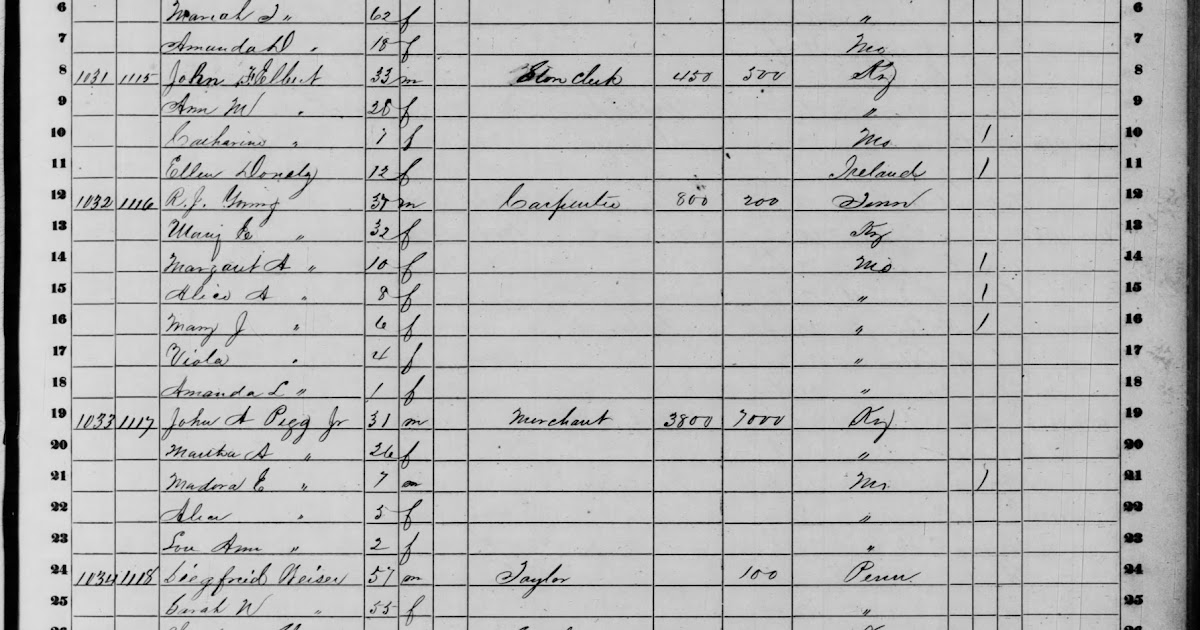 6 Mariah J " 62 f " 6
7 Amanda D " 18 f Mo 7
8 1031 1115 John F Elbert 33 m Clerk 450 500 Ky 8
9 Ann M " 28 f " 9
10 Catharine " 7 f Mo 1 10
11 Ellen Donely 12 f Ireland 1 11
12 1032 1116 R. J. Young 37 m Carpenter 800 200 Tenn 12
13 Mary E " 32 f Ky 13
14 Margaret A " 10 f Mo 1 14
15 Alice A " 8 f " 1 15
16 Mary J " 6 f " 1 16
17 Viola " 4 f " 17
18 Amanda L " 1 f " 18
19 1033 1117 John A Pegg Jr 31 m Merchant 3800 7000 Ky 19
20 Martha A " 26 f " 20
21 Madora E " 7 m Mo 1 21
22 Alice " 5 f " 22
23 Lou Ann " 2 f " 23
24 1034 1118 Siegfreid Weiser 57 m Taylor 100 Penn 24
25 Sarah W " 55 f " 25